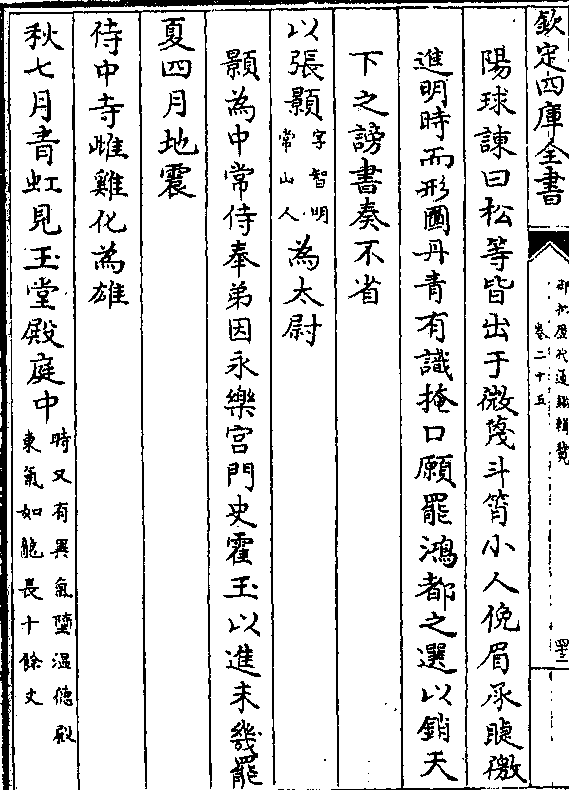 欽定四庫全書
御批歷代通鑑輯覽
卷二十五
陽球諫曰松等皆出于微蔑斗筲小人俛眉承睫徼
進明時而形圖丹青有識掩口願罷鴻都之選以銷天
下之謗書奏不省
以張顥字智明常山人為太尉
顥為中常侍奉弟因永樂宮門史霍玉以進未幾罷
夏四月地震
侍中寺雌雞化為雄
秋七月青虹見玉堂殿庭中時又有異氣墮温德殿東氣如龍長十餘丈